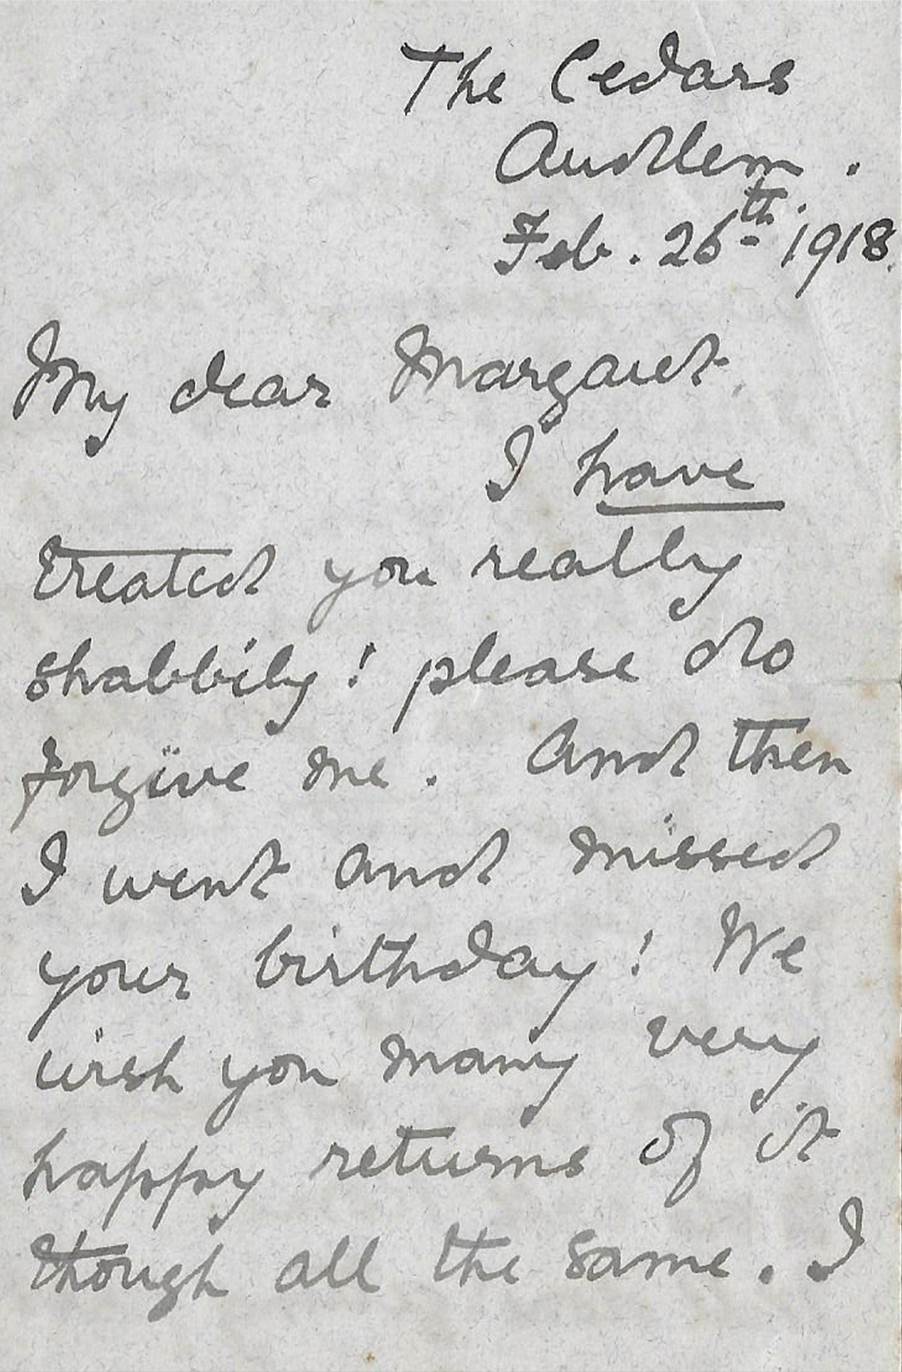 The Cedars
Audlem.
Feb. 26th. 1918.
My dear Margaret
I have
treated you really
shabbily! please do
forgive me. And then
I went and missed
your birthday! We
wish you many very
happy returns of it
though all the same. I